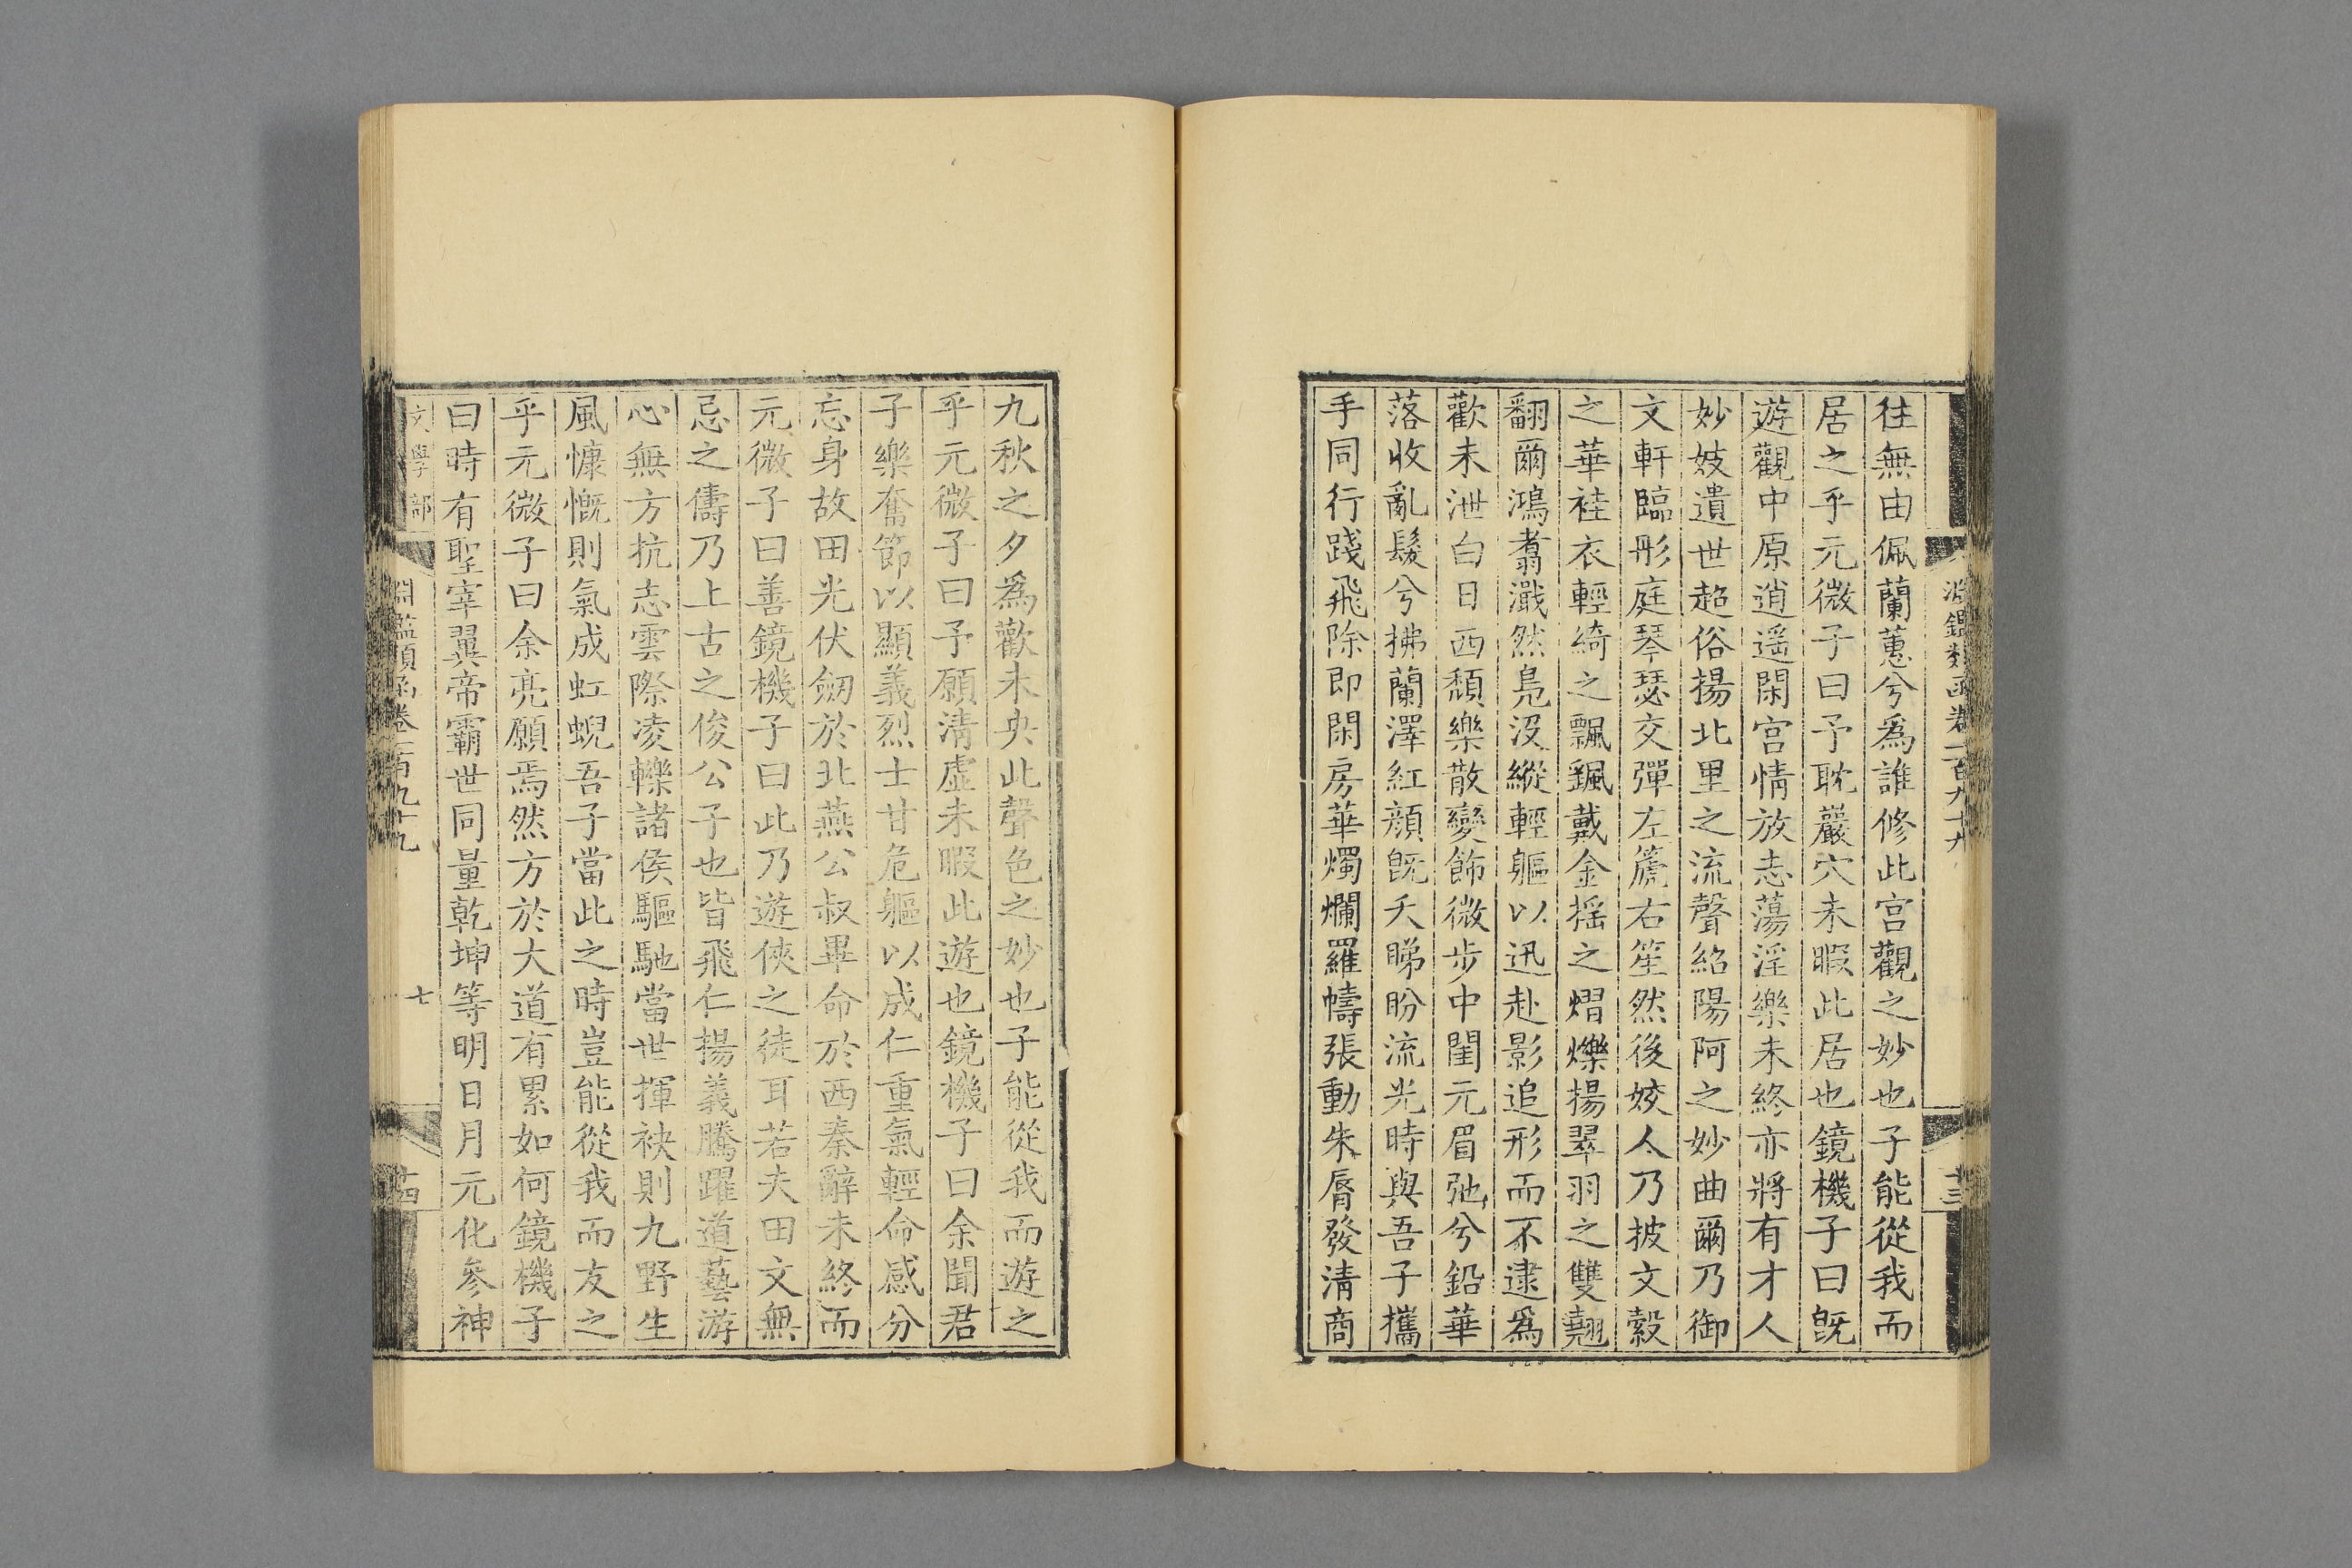 淵鑑類函卷一百九十九
十三
往無由佩蘭蕙兮爲誰修此宫觀之妙也子能從我而
居之乎元微子曰予耽巖穴未暇此居也鏡機子曰既
遊觀中原逍遥閑宫情放志蕩淫樂未終亦將有才人
妙妓遺世超俗揚北里之流聲紹陽阿之妙曲爾乃御
文軒臨彤庭琴瑟交彈左篪右笙然後姣人乃披文縠
之華袿衣輕綺之飄颻戴金摇之熠爍揚翠羽之雙翹
翻爾鴻翥濈然鳧没縱輕軀以迅赴影追形而不逮爲
歡未泄白日西頽樂散變飾微步中閨元眉弛兮鉛華
落收亂髮兮拂蘭澤紅顔既夭睇盼流光時與吾子攜
手同行踐飛除即閑房華燭爛羅幬張動朱脣發清商
九秋之夕爲歡未央此聲色之妙也子能從我而遊之
乎元微子曰予願清虚未暇此遊也鏡機子曰余聞君
子樂奮節以顯義烈士甘危軀以成仁重氣輕命感分
忘身故田光伏劒於北燕公叔畢命於西秦辭未終而
元微子曰善鏡機子曰此乃遊俠之徒耳若夫田文無
忌之儔乃上古之俊公子也皆飛仁揚義騰躍道藝游
心無方抗志雲際凌轢諸侯驅馳當世揮袂則九野生
風慷慨則氣成虹蜺吾子當此之時豈能從我而友之
乎元微子曰余亮願焉然方於大道有累如何鏡機子
曰時有聖宰翼帝霸世同量乾坤等明日月元化參神
文學部
淵鑑類函卷一百九十九
七
十四